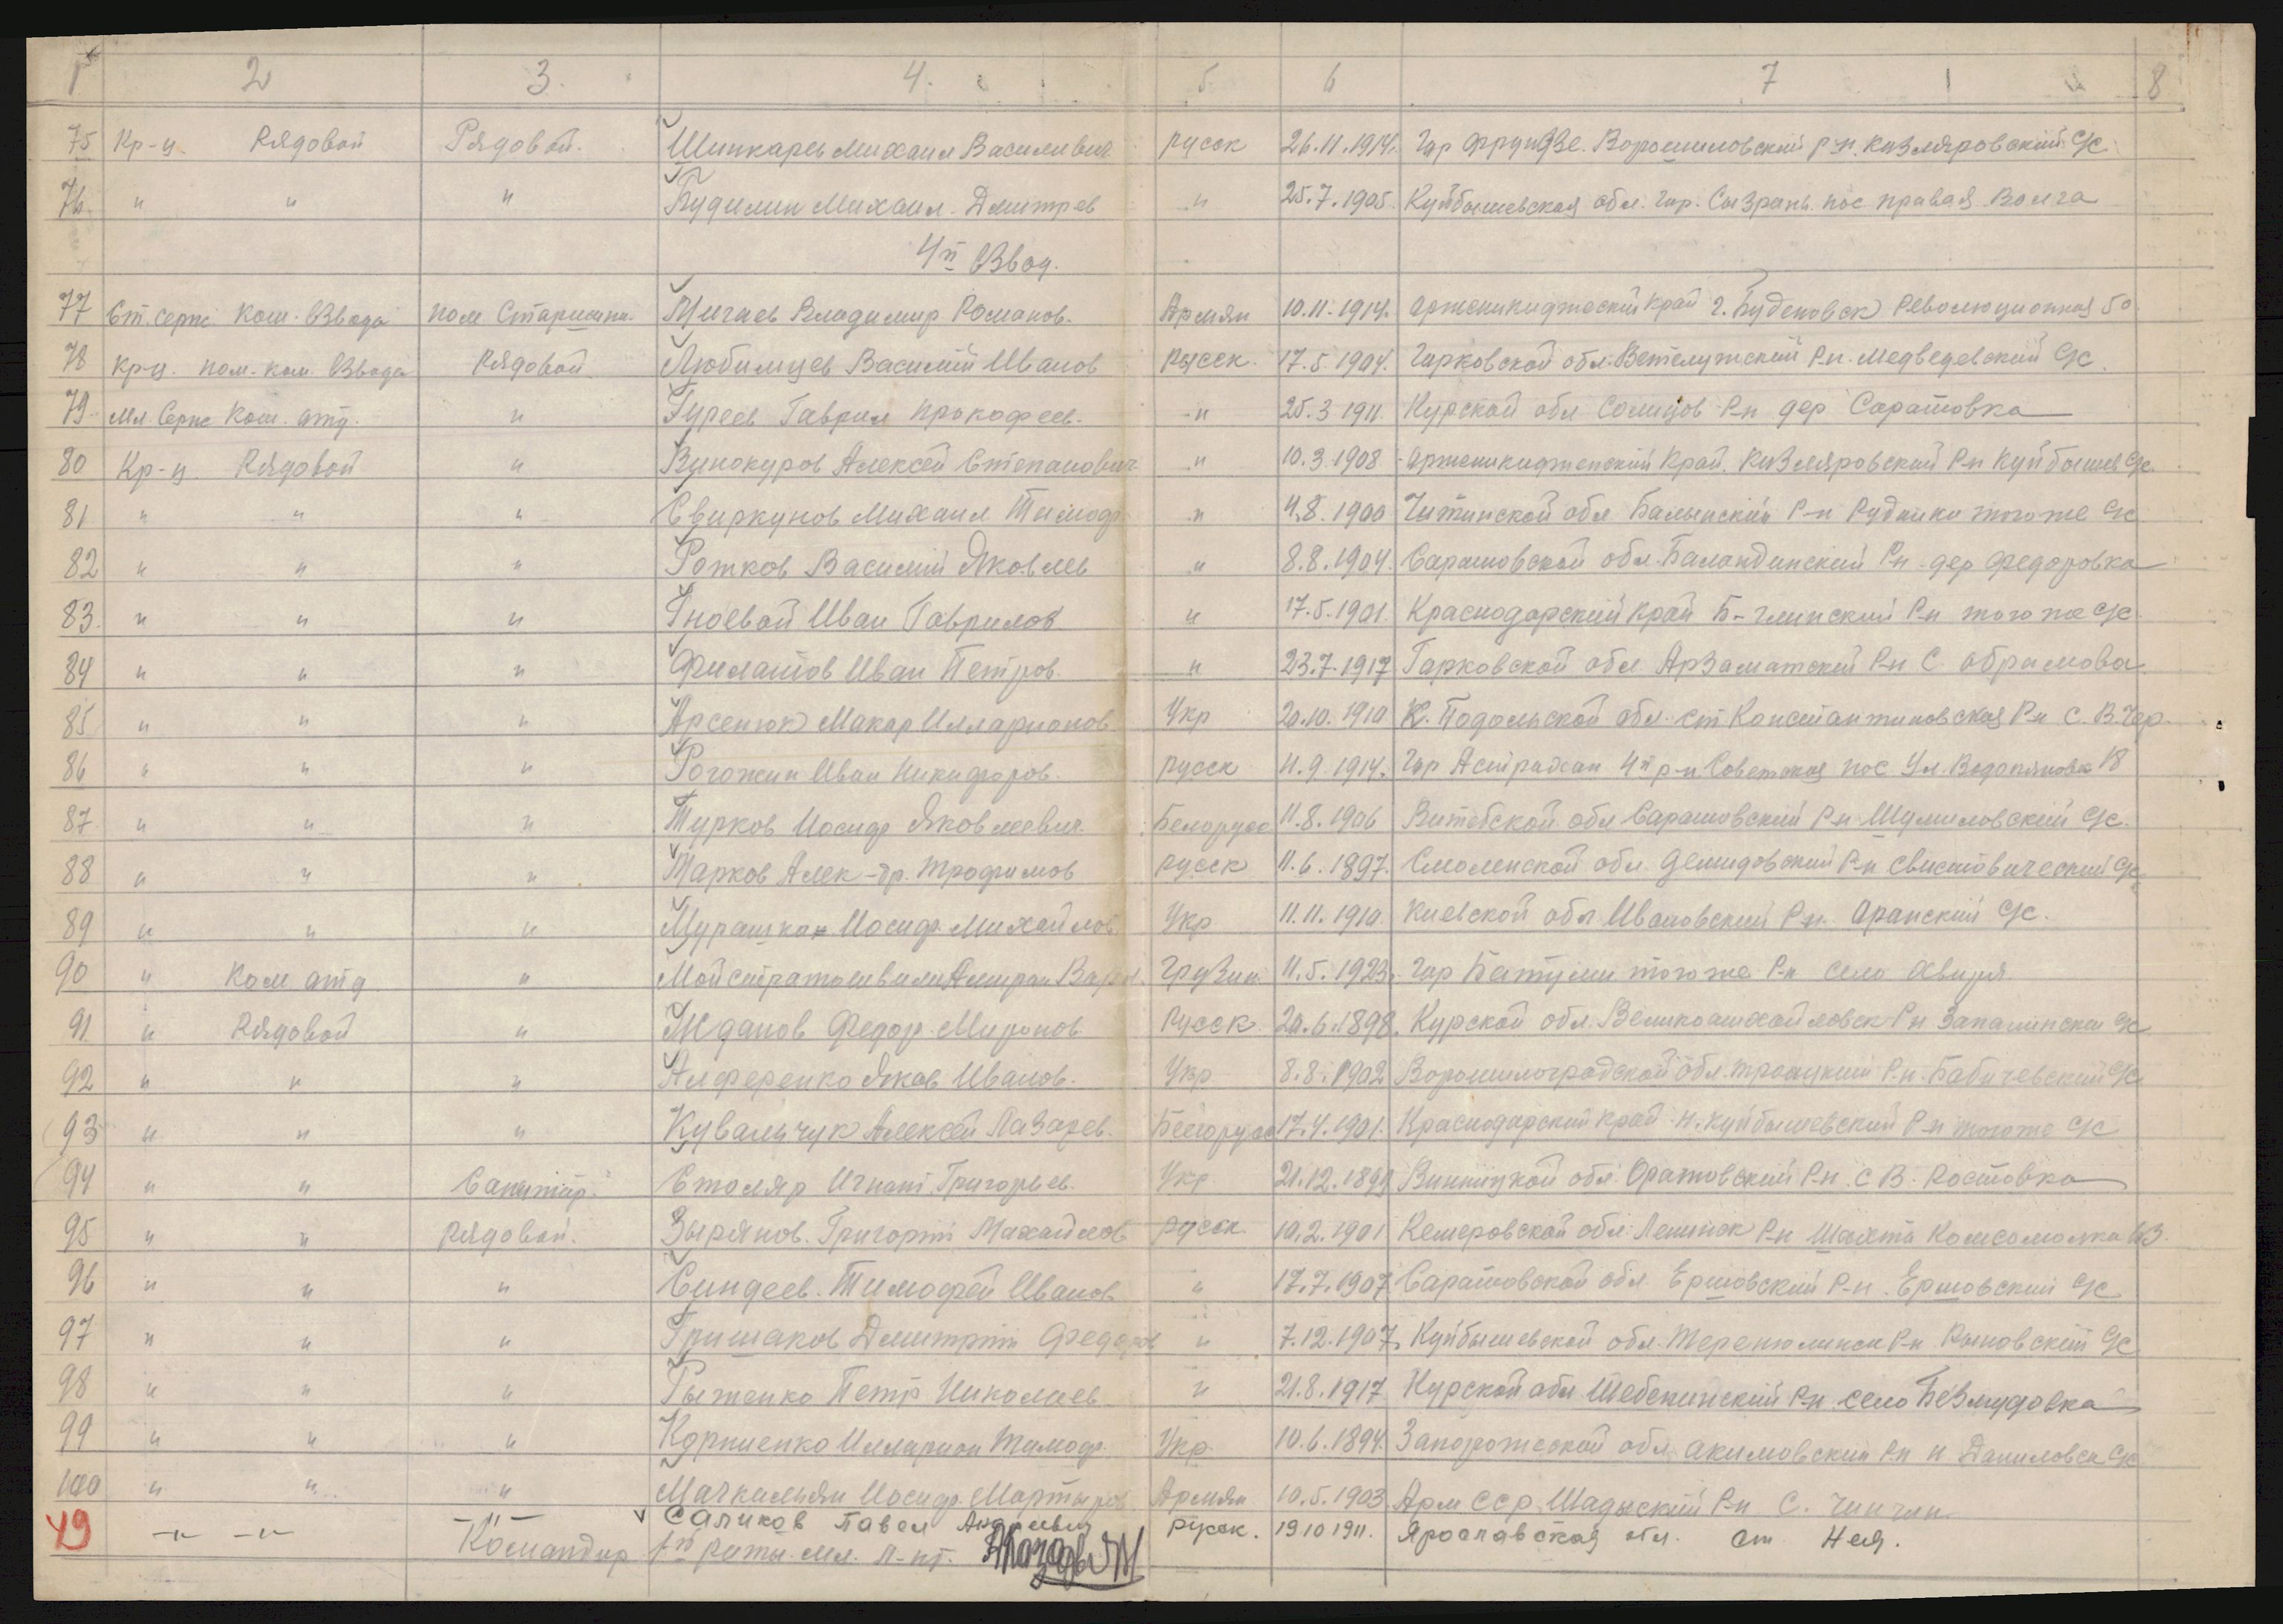 1 2 3. 4. 5 6 7 8
75 Кр-ц Рядовой Рядовой. Шинкарев Михаил Василивич русск 26.11.1914. Гор Фрунзе. Ворошиловский р-н. Кизляровский с/с
76. " " " Будилин Михаил Дмитрев " 25.7.1905. Куйбышевская обл. гор. Сызрань. пос правая Волга
4й Взвод.
77 Ст. серж Ком. Взвода пом Старшины. Мигаев Владимир Романов. Армян 10.11.1914. Орженикиджеский край г. Буденовск Революционная 50
78 Кр-ц. пом. ком. Взвода Рядовой Любимцев Василий Иванов Русск. 17.5.1904. Горковской обл. Ветлужский Р-н. Медведевский с/с.
79 Мл. Серж Ком. отд. " Гуреев Гаврил Прокофеев. " 25.3 1911. Курской обл Солнцов Р-н дер Саратовка
80 Кр-ц Рядовой " Винокуров Алексей Степанович " 10.3.1908 Орженикидженский Край. Кизляровский Р-н Куйбышев с/с.
81 " " " Свиркунов Михаил Тимоф " 4.8.1900 Читинской обл Балыйский Р-н Рудники тогоже с/с
82 " " " Рожков Василий Яковлев " 8.8.1904. Саратовской обл. Баландинский Р-н дер Федоровка
83. " " " Гноевой Иван Гаврилов " 17.5.1901. Краснодарский край Б-глинский Р-н того же с/с.
84 " " " Филатов Иван Петров. " 23.7.1917 Горковской обл Арзаматский Р-н С. Абрамова
85 " " " Арсенюк Макар Илларионов Укр 20.10.1910 К. Подольской обл. ст Константиновская Р-н с. В. Чер.
86 " " " Рогожин Иван Никифоров. русск 4.9 1914. Гор Астрахан 4й р-н Советская пос Ул. Водопьянова 18
87 " " " Турков Иосиф Яковлевич. Белорусс 11.8.1906 Витебской обл Саратовский Р-н Шумиловский с/с.
88 " " " Марков Алек-др. Трофимов русск 11.6.1897. Смоленской обл. Демидовский Р-н Свистовический с/с
89 " " " Мурашко Иосиф Михайлов Укр 11.11.1910. Киевской обл Ивановский Р-н. Оранский с/с.
90 " Ком отд " Майстратошвили Амиран Грузин. 11.5.1923. Гор Батуми тогоже Р-н село
91. " Рядовой " Жданов Федор Миронов Русск 20.6.1898. Курской обл. Великомихайловск Р-н с/с
92 " " " Алференко Яков Иванов. Укр 8.8.1902 Ворошилоградской обл. троицкий Р-н. Бабичевский с/с
93 " " " Кувальчук Алексей Лазарев. Белорусс 17.4.1901. Краснодарский край н. куйбышевский Р-н тогоже с/с
94 " " Санитар. Столяр Игнат Григорьев. Укр 21.12.1899 Винницкой обл Оратовский Р-н. с В. Ростовка
95 " " Рядовой. Зырянов. Григорий Михайлов русск. 10.2.1901 Кемеровской обл Ленинск Р-н Шахта Комсомолка 63.
96 " " " Синдеев. Тимофей Иванов " 17.7.1907 Саратовской обл Ершовский Р-н. Ершовский с/с
97 " " " Гришаков Дмитрий Федоров " 7.12.1907. Куйбышевской обл. Теренюлинск Р-н с/с
98 " " " Рыженко Петр Николаев " 21.8.1917 Курской обл Шебекинский Р-н село Безлудовка
99 " " " Корниенко Илларион Тимоф. Укр 10.6.1894. Запорожеской обл акимовский Р-н н Даниловск с/с
100 " " " Мачкальян Иосиф. Мартыров Армян 10.5.1903 Арм ССР. Шадыский Р-н С. Чинчин
49 -"- -"- -"- Саликов Павел Андреевич русск. 19 10 1911. Ярославская обл. ст Нея.
Командир 1й роты. Мл. л-нт.